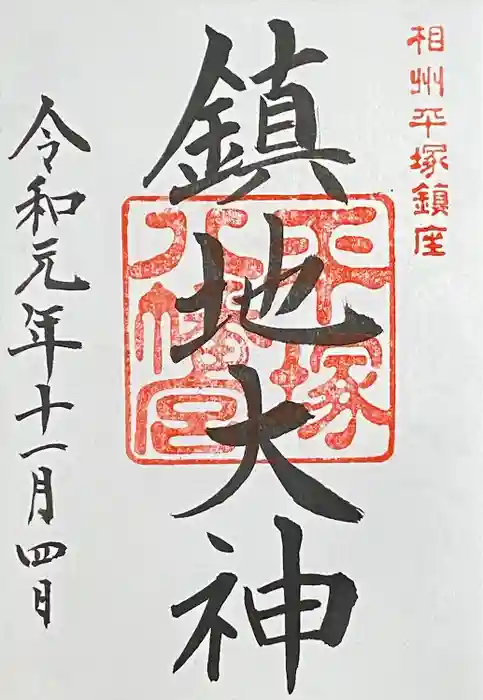 相州平塚鎮座
鎮地大神
平塚
八幡宮
令和元年十一月四日